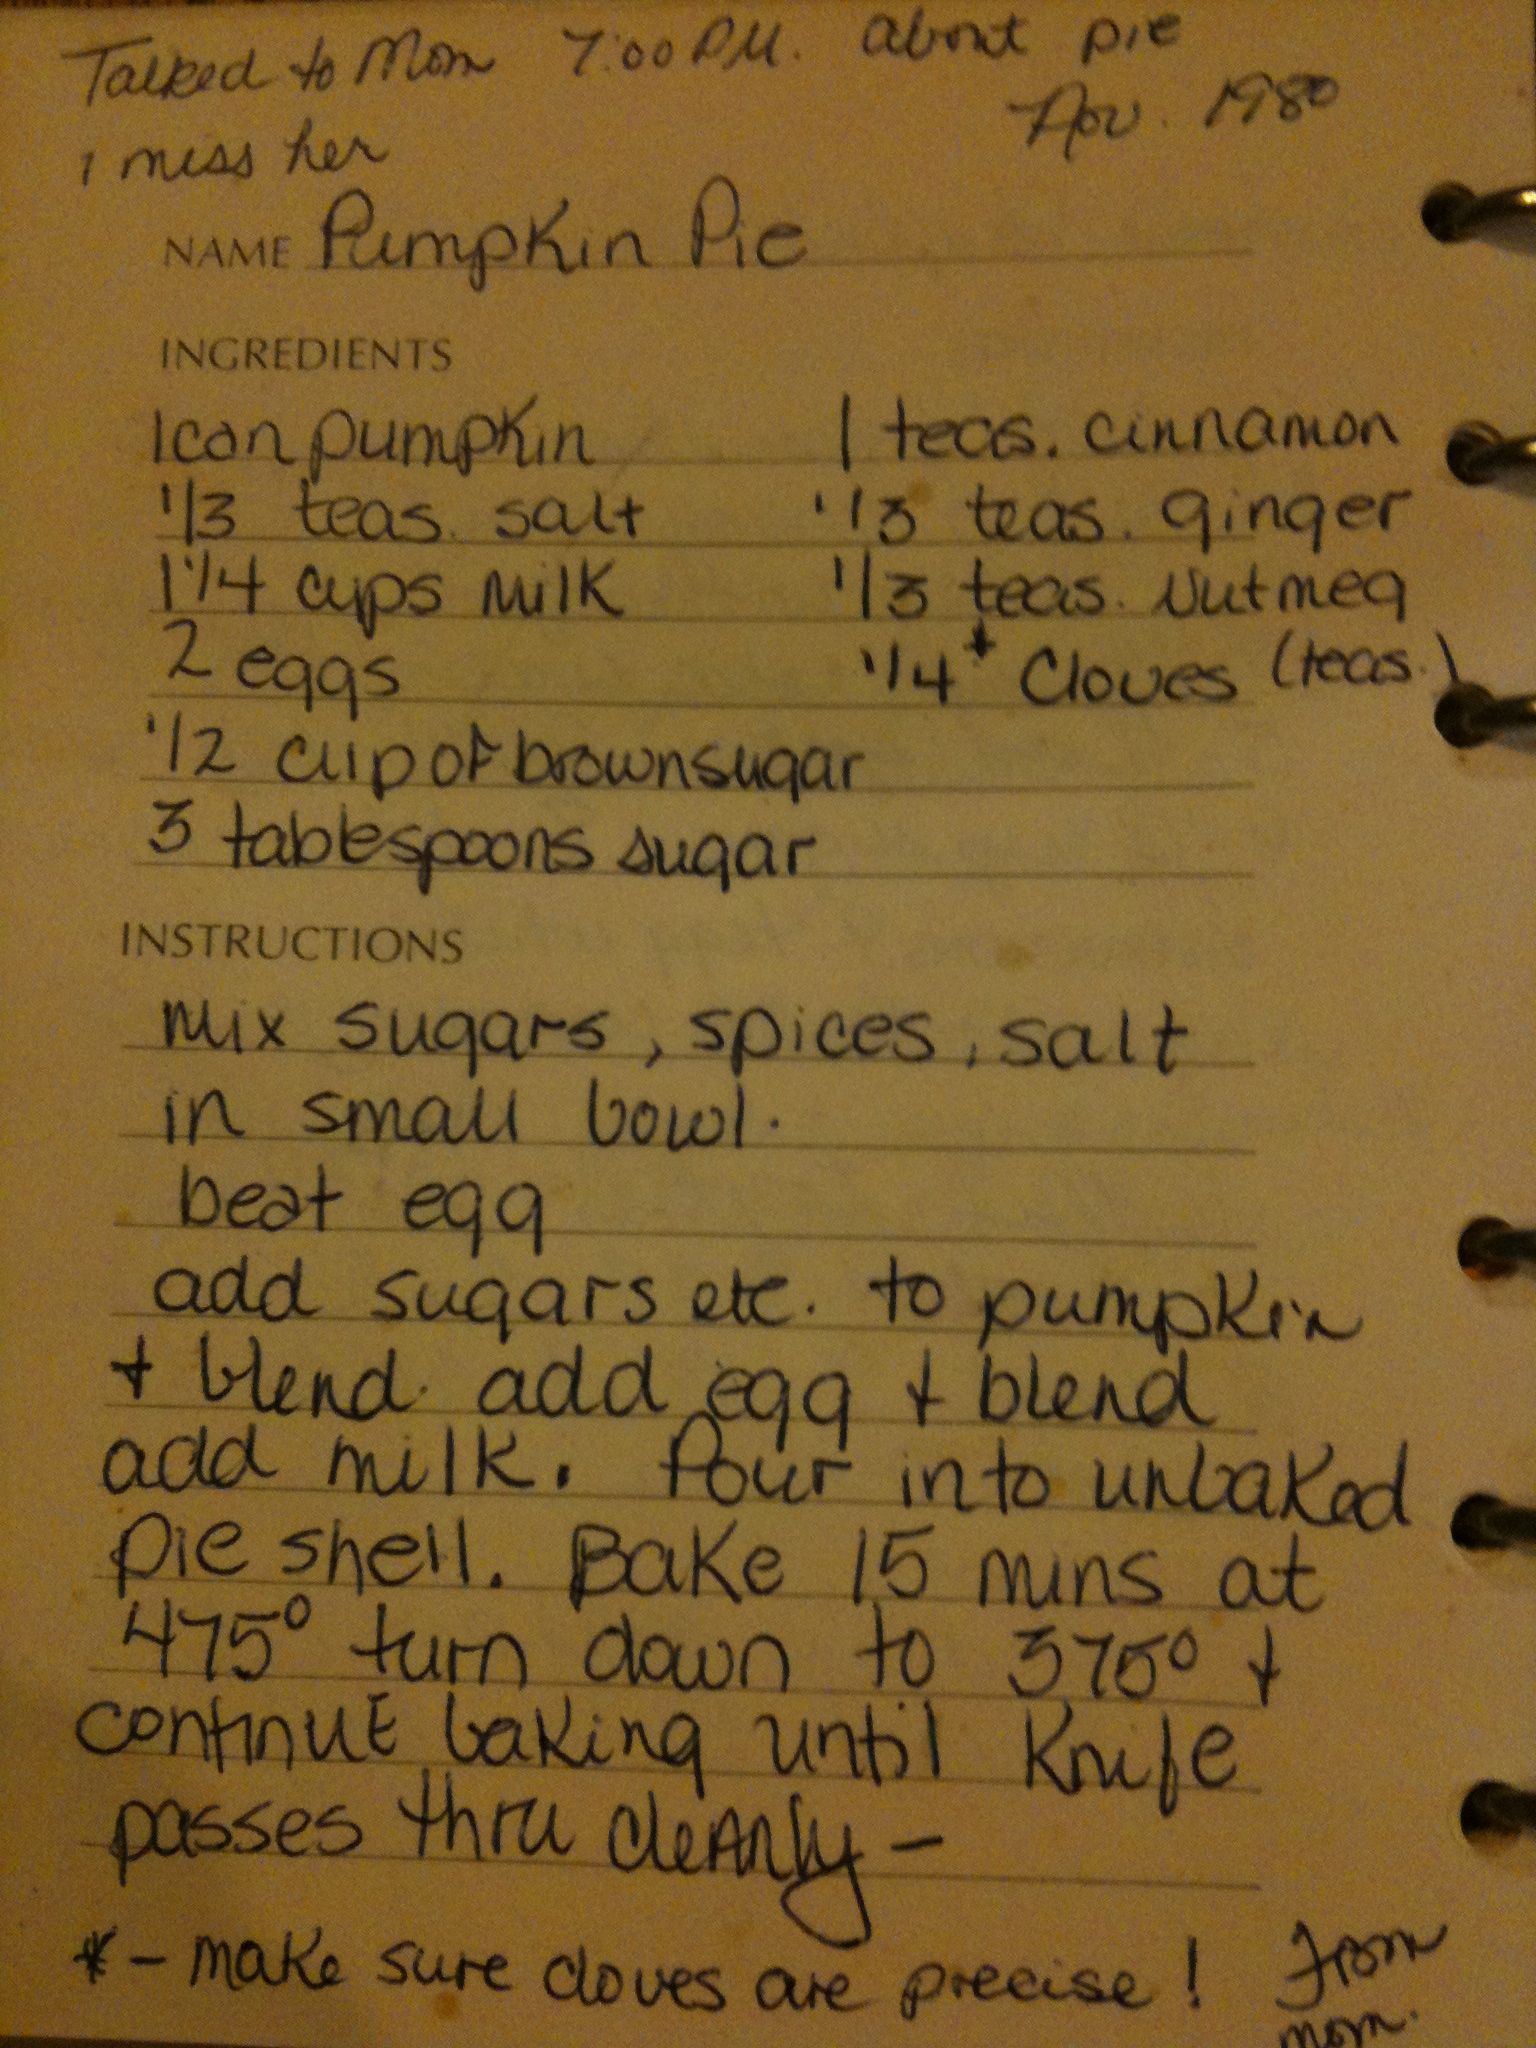 Talked to Mom 7:00 P.M. about pie
Nov. 1980
I miss her
NAME Pumpkin Pie
INGREDIENTS
1 can pumpkin 1 teas. cinnamon
1/3 teas. salt 1/3 teas. ginger
1 1/4 cups milk 1/3 teas. Nutmeg
2 eggs 1/4 * Cloves (teas.)
1/2 cup of brown sugar
3 tablespoons sugar
INSTRUCTIONS
mix sugars, spices, salt
in small bowl.
beat egg
add sugars etc. to pumpkin
+ blend. add egg + blend
add milk. Pour into unbaked
pie shell. Bake 15 mins at
475° turn down to 375° +
continue baking until knife
passes thru cleanly -
* - make sure cloves are precise! From
mom.